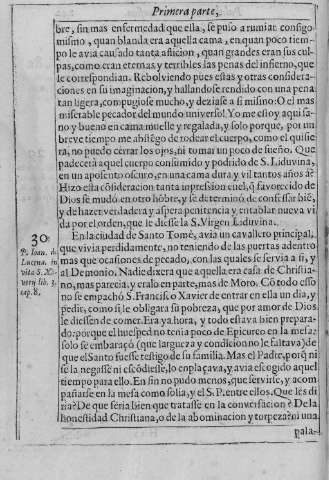 Primera parte,
bre, sin mas enfermedad que esta, se puso a rumiar consigo
mismo, quan blanda era aquella cama, en quan poco tiem-
po le avia causado tanta aflicion, quan grandes eran sus cul-
pas, como eran eternas y terribles las penas del infierno, que
le correspondian. Rebolviendo pues estas y otras considera-
ciones en su imaginacion, y hallandose rendido con una pena
tan ligera, compugiose mucho, y deziase a si mismo: O el mas
miserable pecador del mundo universo! Yo me estoy aqui sa-
no y bueno en cama muelle y regalada, y solo porque, por un
breve tiempo me abstēgo de rodear el cuerpo, como el quisie
ra, no puedo cerrar los ojos, ni tomar un poco de sueño. Que
padecerà aquel cuerpo consumido y podrido de S. Liduvina,
en un aposento oscuro, en una cama dura, y vil tantos años à?
Hizo esta cōsideracion tanta inpresion en el, q̃ favorecido de
Dios se mudó en otro hōbre, y se determinó de confessar biē,
y de hazer verdadera y aspera penitencia y entablar nueva vi
da por el orden, que le diesse la S. Virgen Liduvina.
30
P. Ioan. de
Lucena. in
vita S. Xa-
verij lib. 3.
cap. 8.
En la ciudad de Santo Tomè, avia un cavallero principal,
que vivia perdidamente, no teniendo de las puertas adentro
mas que ocasiones de pecado, con las quales se servia a si, y
al Demonio. Nadie dixera que aquella era casa de Christia-
no, mas parecia, y eralo en parte, mas de Moro. Cō todo esso
no se empachó S. Francisco Xavier de entrar en ella un dia, y
pedir, como si le obligara su pobreza, que por amor de Dios
le diessen de comer. Era ya hora, y todo estava bien prepara-
do: porque el huesped no tenia poco de Epicureo en la mesa:
solo se embaraçó (que largueza y condicion no le faltava) de
que el Santo fuesse testigo de su familia. Mas el Padre, porq̃ ni
se la negasse ni escōdiesse, lo enplaçava, y avia escogido aquel
tiempo para ello. En fin no pudo menos, que servirse, y acom
pañarse en la mesa como solia, y el S. P. entre ellos. Que les di
ria? De que seria bien que tratasse en la conversacion? De la
honestidad Christiana, o de la abominacion y turpeza? ni una
pala-